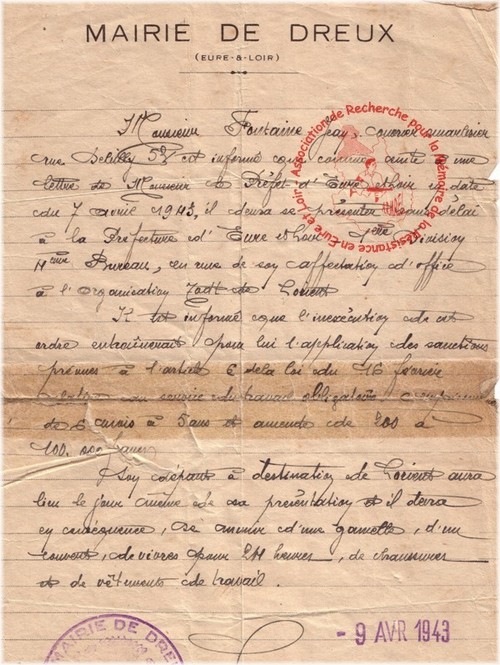 MAIRIE DE DREUX
(EURE-&-LOIR)
Monsieur Fontaine
rue 59 est informé que comme suite à une
lettre de Monsieur le Préfet d'Eure et Loir en date
du 7 avril 1943, il devra se présenter sans délai
à la Préfecture d'Eure et Loir, 1ère Division
4ème Bureau, en vue de son affectation d'office
à l'Organisation Todt de Lorient
Il est informé que l'inexécution de cet
ordre entraînerait pour lui l'application des sanctions
prévues à l'article 6 de la loi du 16 février
service du travail obligatoire
de 6 mois à 5 ans et amende de 200 à
100.000 francs
Son départ à destination de Lorient aura
lieu le jour même de sa présentation et il devra
en conséquence, se munir d'une gamelle, d'un
couvert, de vivres pour 24 heures, de chaussures
et de vêtements de travail.
- 9 AVR 1943
MAIRIE DE DREUX
Association de Recherche pour la Mémoire de la Résistance en Eure et Loir